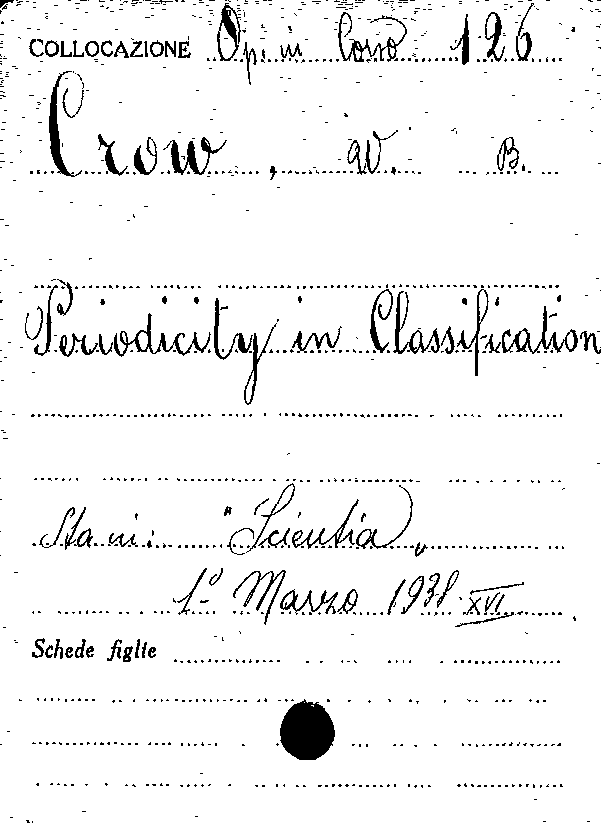 COLLOCAZIONE Op. in Corso 126
Crow, W. B.
Periodicity in Classification
Sta in: "Scientia"
1º Marzo 1938-XVI
Schede figlie